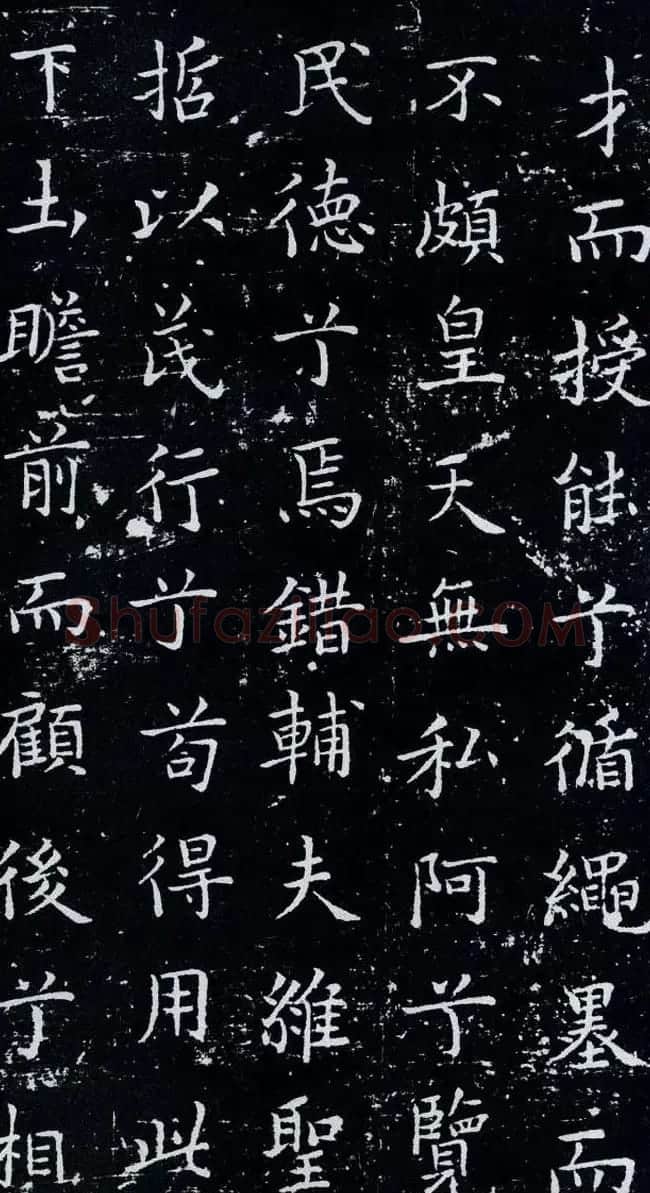 才而授能兮循繩墨而
不頗皇天無私阿兮覽
民德兮焉錯輔夫維聖
哲以茂行兮苟得用此
下土瞻前而顧後兮相
Shufaziliao.COM